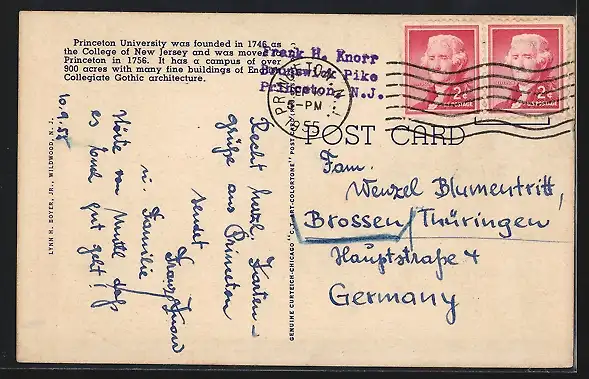 Princeton University was founded in 1746 as
the College of New Jersey and was moved to
Princeton in 1756. It has a campus of over
900 acres with many fine buildings of English
Collegiate Gothic architecture.
Frank H. Knorr
Brunswick Pike
Princeton, N.J.
PRINCETON N.J.
SEP 10
5-PM
1955
2¢
U.S. POSTAGE
2¢
U.S. POSTAGE
POST CARD
LYNN H. BOYER, JR., WILDWOOD, N. J.
GENUINE CURTEICH-CHICAGO "C.T. ART-COLORTONE" POST CARD
10.9.55
Recht herzl. Karten-
grüße aus Princeton
sendet
Franz Knorr
u. Familie
Hörte von Mutti daß
es Euch gut geht!
Fam.
Wenzel Blumentritt,
Brossen/Thüringen
Hauptstraße 4
Germany